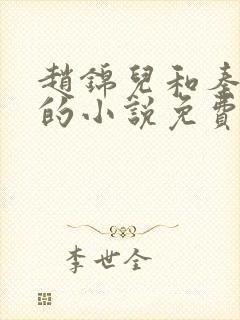 趙錦兒和秦
的小說免費
李世全